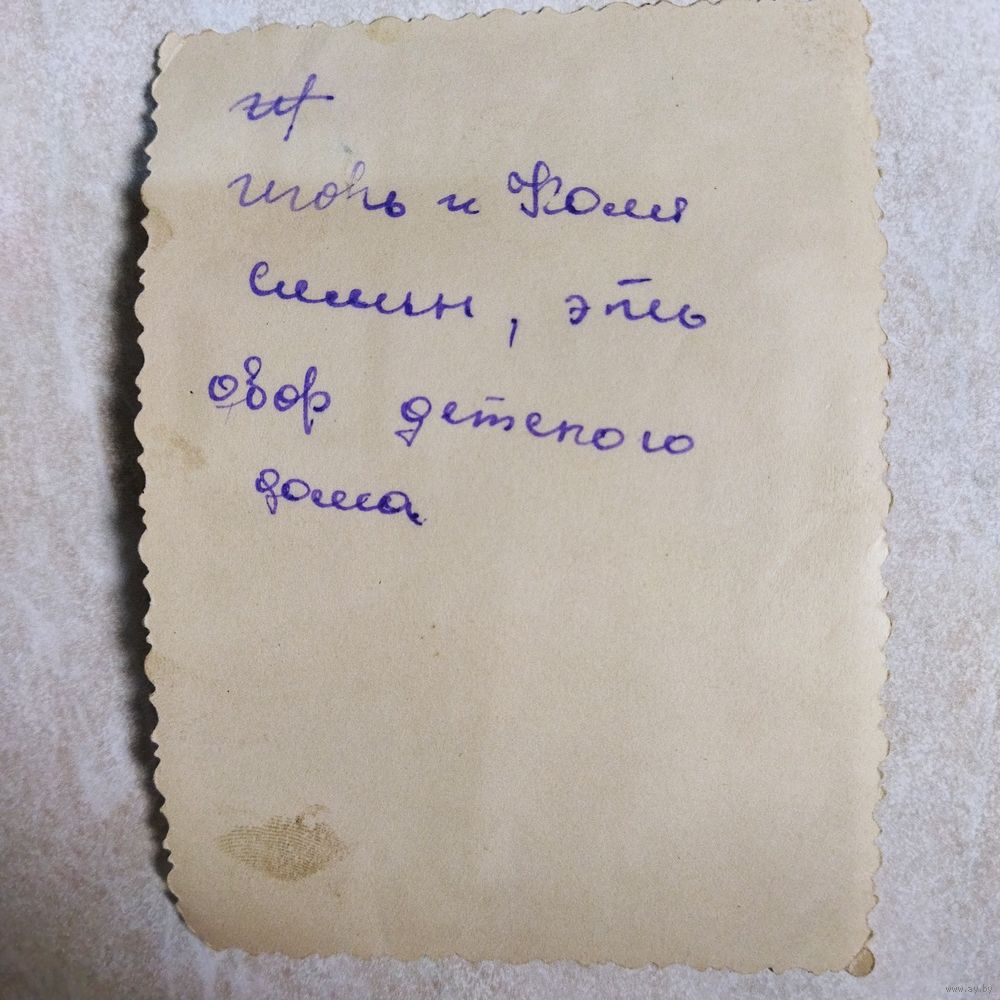 игорь и Коля
симын, эть
двор детского
дома
www.ay.by